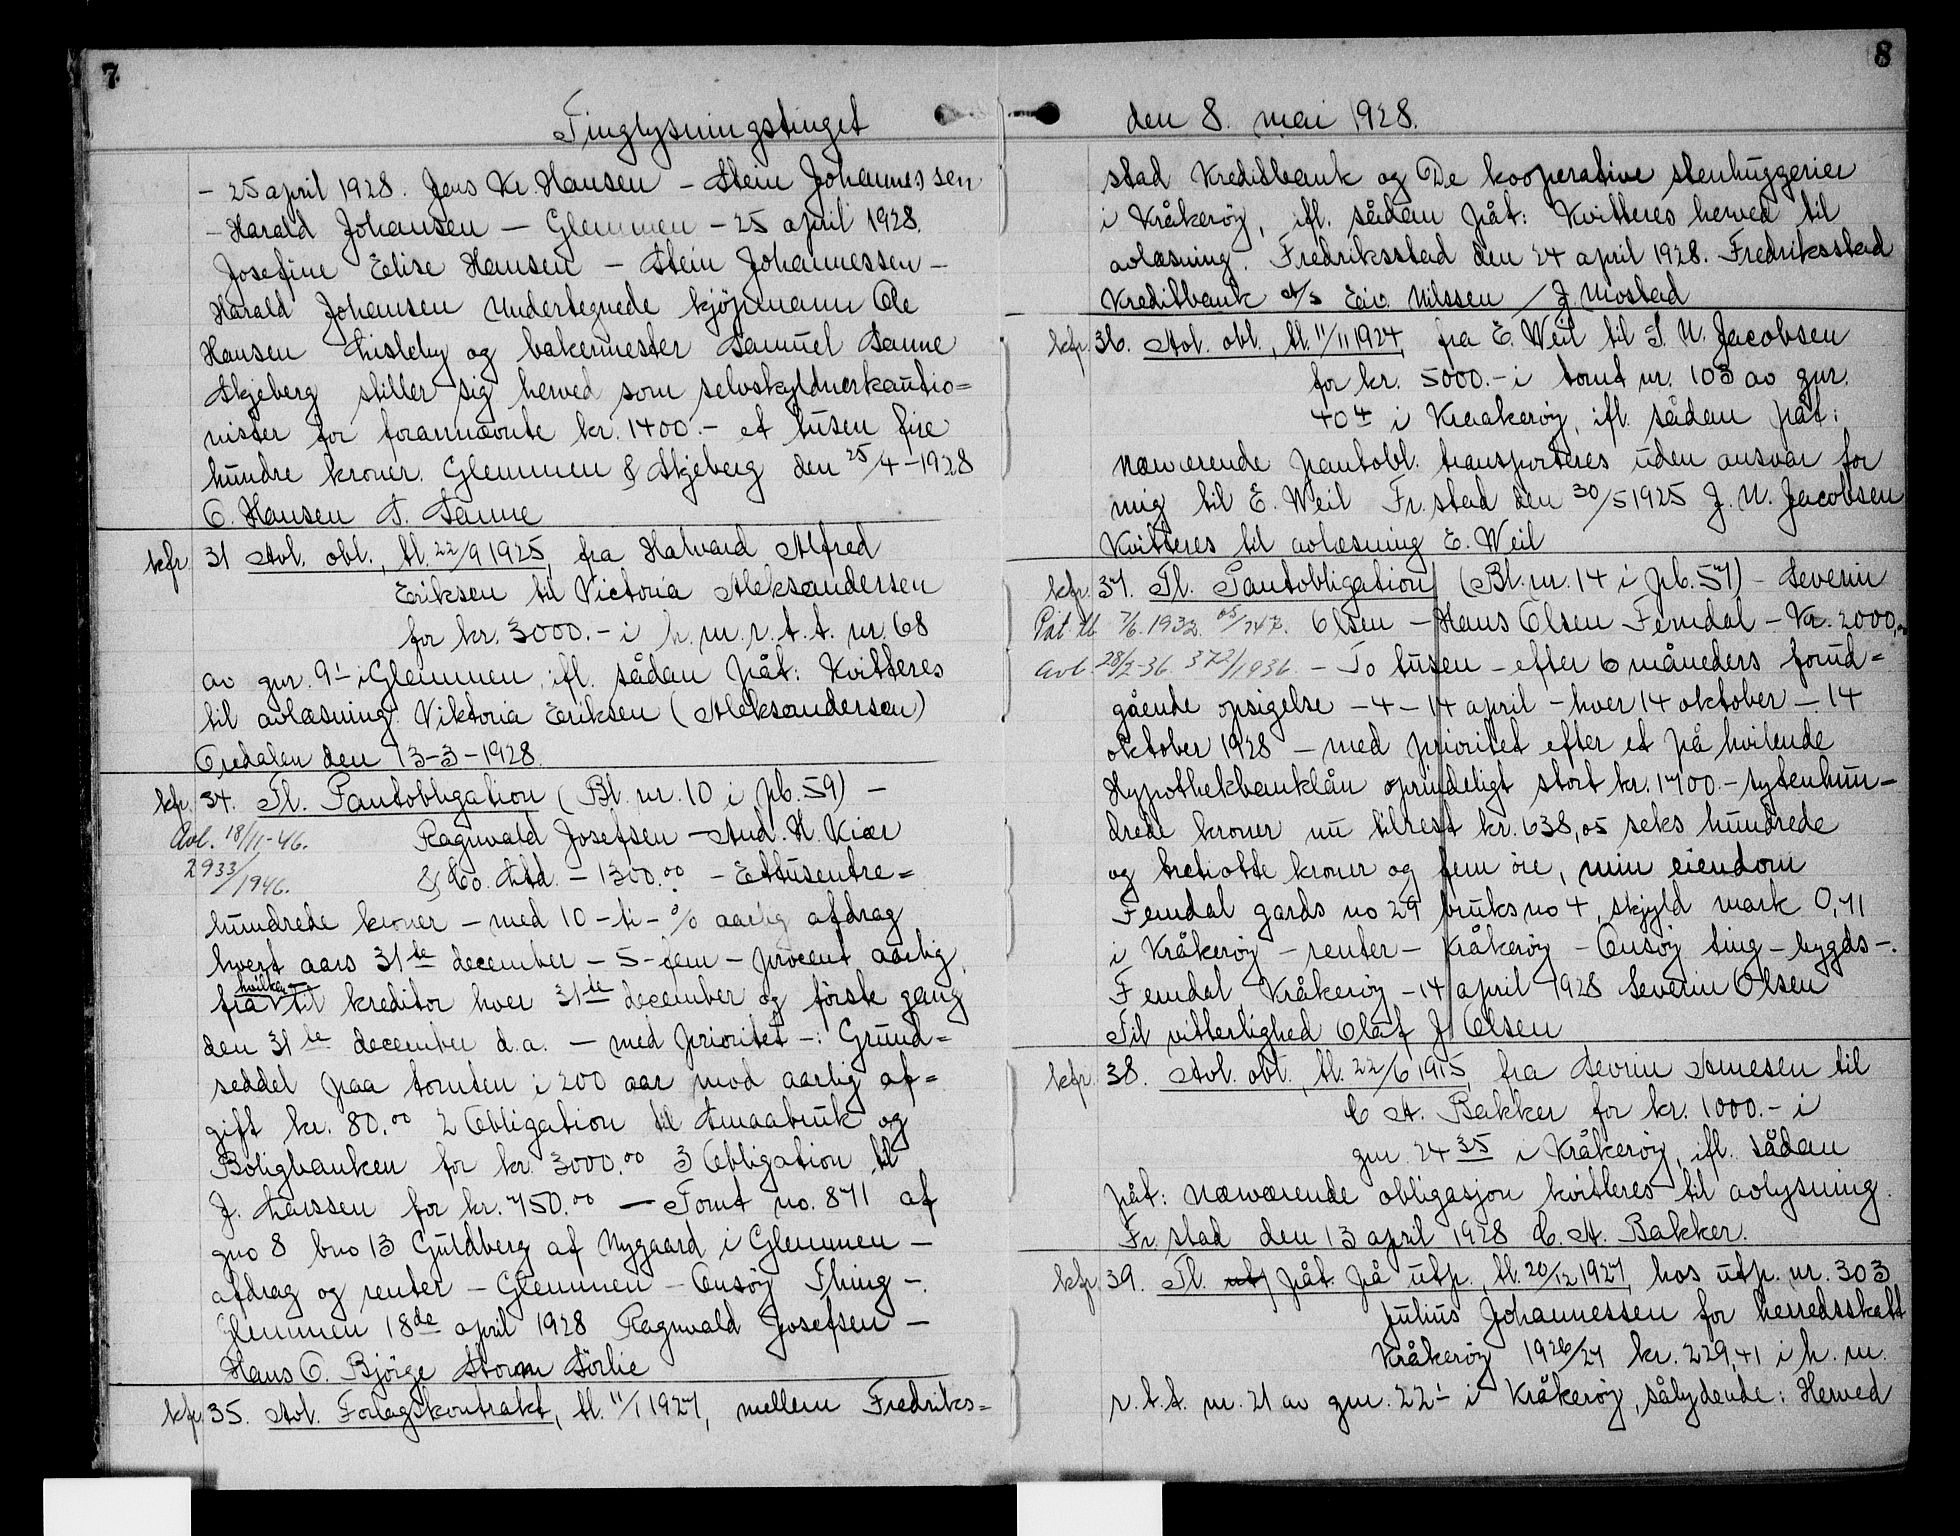 7
Tinglysningstinget
- 25 april 1928. Jens Kr. Hansen - Stein Johannessen
- Harald Johansen - Glemmen - 25 april 1928.
Josefine Elise Hansen - Stein Johannessen -
Harald Johansen Undertegnede kjöpmann Ole
Hansen Lisleby og bakermester Samuel Sanne
Skjeberg stiller sig herved som selvskyldnerkautio=
nister for forannævnte kr. 1400.- et tusen fire
hundre kroner. Glemmen & Skjeberg den 25/4-1928
O. Hansen S. Sanne
kfr. 31 Avl. obl., tl. 22/9 1925, fra Halvard Alfred
Eriksen til Victoria Aleksandersen
for kr. 3000.- i h. m. r. t. t. nr. 68
av gnr. 9¹ i Glemmen, ifl. sådan påt: Kvitteres
til avlæsning. Viktoria Eriksen (Aleksandersen)
Oredalen den 13-3-1928.
kfr. 34. Tl. Pantobligation (Bl. nr. 10 i pb. 59) -
Avl. 18/11-46. Ragnvald Josefsen - And. H. Kiær
2933/1946. & Co. Ltd. - 1300.00 - Ettusentre=
hundrede kroner - med 10 - ti - % aarlig afdrag
hvert aars 31te december - 5 - fem - procent aarlig,
hvilken
fra til kreditor hver 31te december og förste gang
den 31te december d.a. - med prioritet -: Grund=
seddel paa tomten i 200 aar mod aarlig af=
gift kr. 80.00 2 Obligation til Smaabruk og
Boligbanken for kr. 3000.00 3 Obligation til
J. Larssen for kr. 750.00 - Tomt no. 871 af
gno 8 bno 13 Guldberg af Nygaard i Glemmen -
afdrag og renter - Glemmen - Onsöy Thing -.
Glemmen 18de april 1928 Ragnvald Josefsen -
Hans O. Bjørge Storm Sörlie
kfr. 35. Avl. Forlagskontrakt, tl. 11/1 1927, mellem Fredriks=
8
den 8. mai 1928.
stad Kreditbank og De kooperative stenhuggerier
i Kråkeröy, ifl. sådan påt: Kvitteres herved til
avlæsning. Fredriksstad den 24 april 1928. Fredriksstad
Kreditbank A/S Eiv. Nilssen / J. Mostad
kfr. 36. Avl. obl., tl. 11/11 1924, fra E. Weil til J. N. Jacobsen
for kr. 5000.- i tomt nr. 103 av gnr.
40⁴ i Kraakeröy, ifl. sådan påt:
Nærværende pantobl. transporteres uden ansvar for
mig til E. Weil Fr. stad den 30/5 1925 J. N. Jacobsen
Kvitteres til avlæsning E. Weil
kfr. 37. Tl. Pantobligation (Bl. nr. 14 i pb. 57) - Severin
Påt. tl. 7/6. 1932. Olsen - Hans Olsen Femdal - Kr. 2000,00
Avl. 28/2-36 372/1936. - To tusen - efter 6 måneders forud=
gående opsigelse - 4 - 14 april - hver 14 oktober - 14
oktober 1928 - med prioritet efter et på hvilende
Hypothekbanklån oprindeligt stort kr. 1700.- sytenhun-
drede kroner nu tilrest kr. 638,05 seks hundrede
og tretiotte kroner og fem öre, min eiendom
Femdal gards no 29 bruks no 4, skyld mark 0,71
i Kråkeröy - renter - Kråkeröy - Onsöy ting - bygds -.
Femdal, Kråkeröy - 14 april 1928 Severin Olsen
Til vitterlighed Olaf J. Olsen
kfr. 38. Avl. obl., tl. 22/6 1915, fra Sevrin Arnesen til
C. A. Bakker for kr. 1000.- i
gnr. 24³⁵ i Kråkeröy, ifl. sådan
påt: Nærværende obligasjon kvitteres til avlysning.
Fr. stad den 13 april 1928 C. A. Bakker.
kfr. 39. Tl. påt. på utp., tl. 20/12 1927, hos utp. nr. 303
Julius Johannessen for herredsskatt
Kråkeröy 1926/27 kr. 229,41 i h. m.
r. t. t. nr. 21 av gnr. 22¹ i Kråkeröy, sålydende: Herved